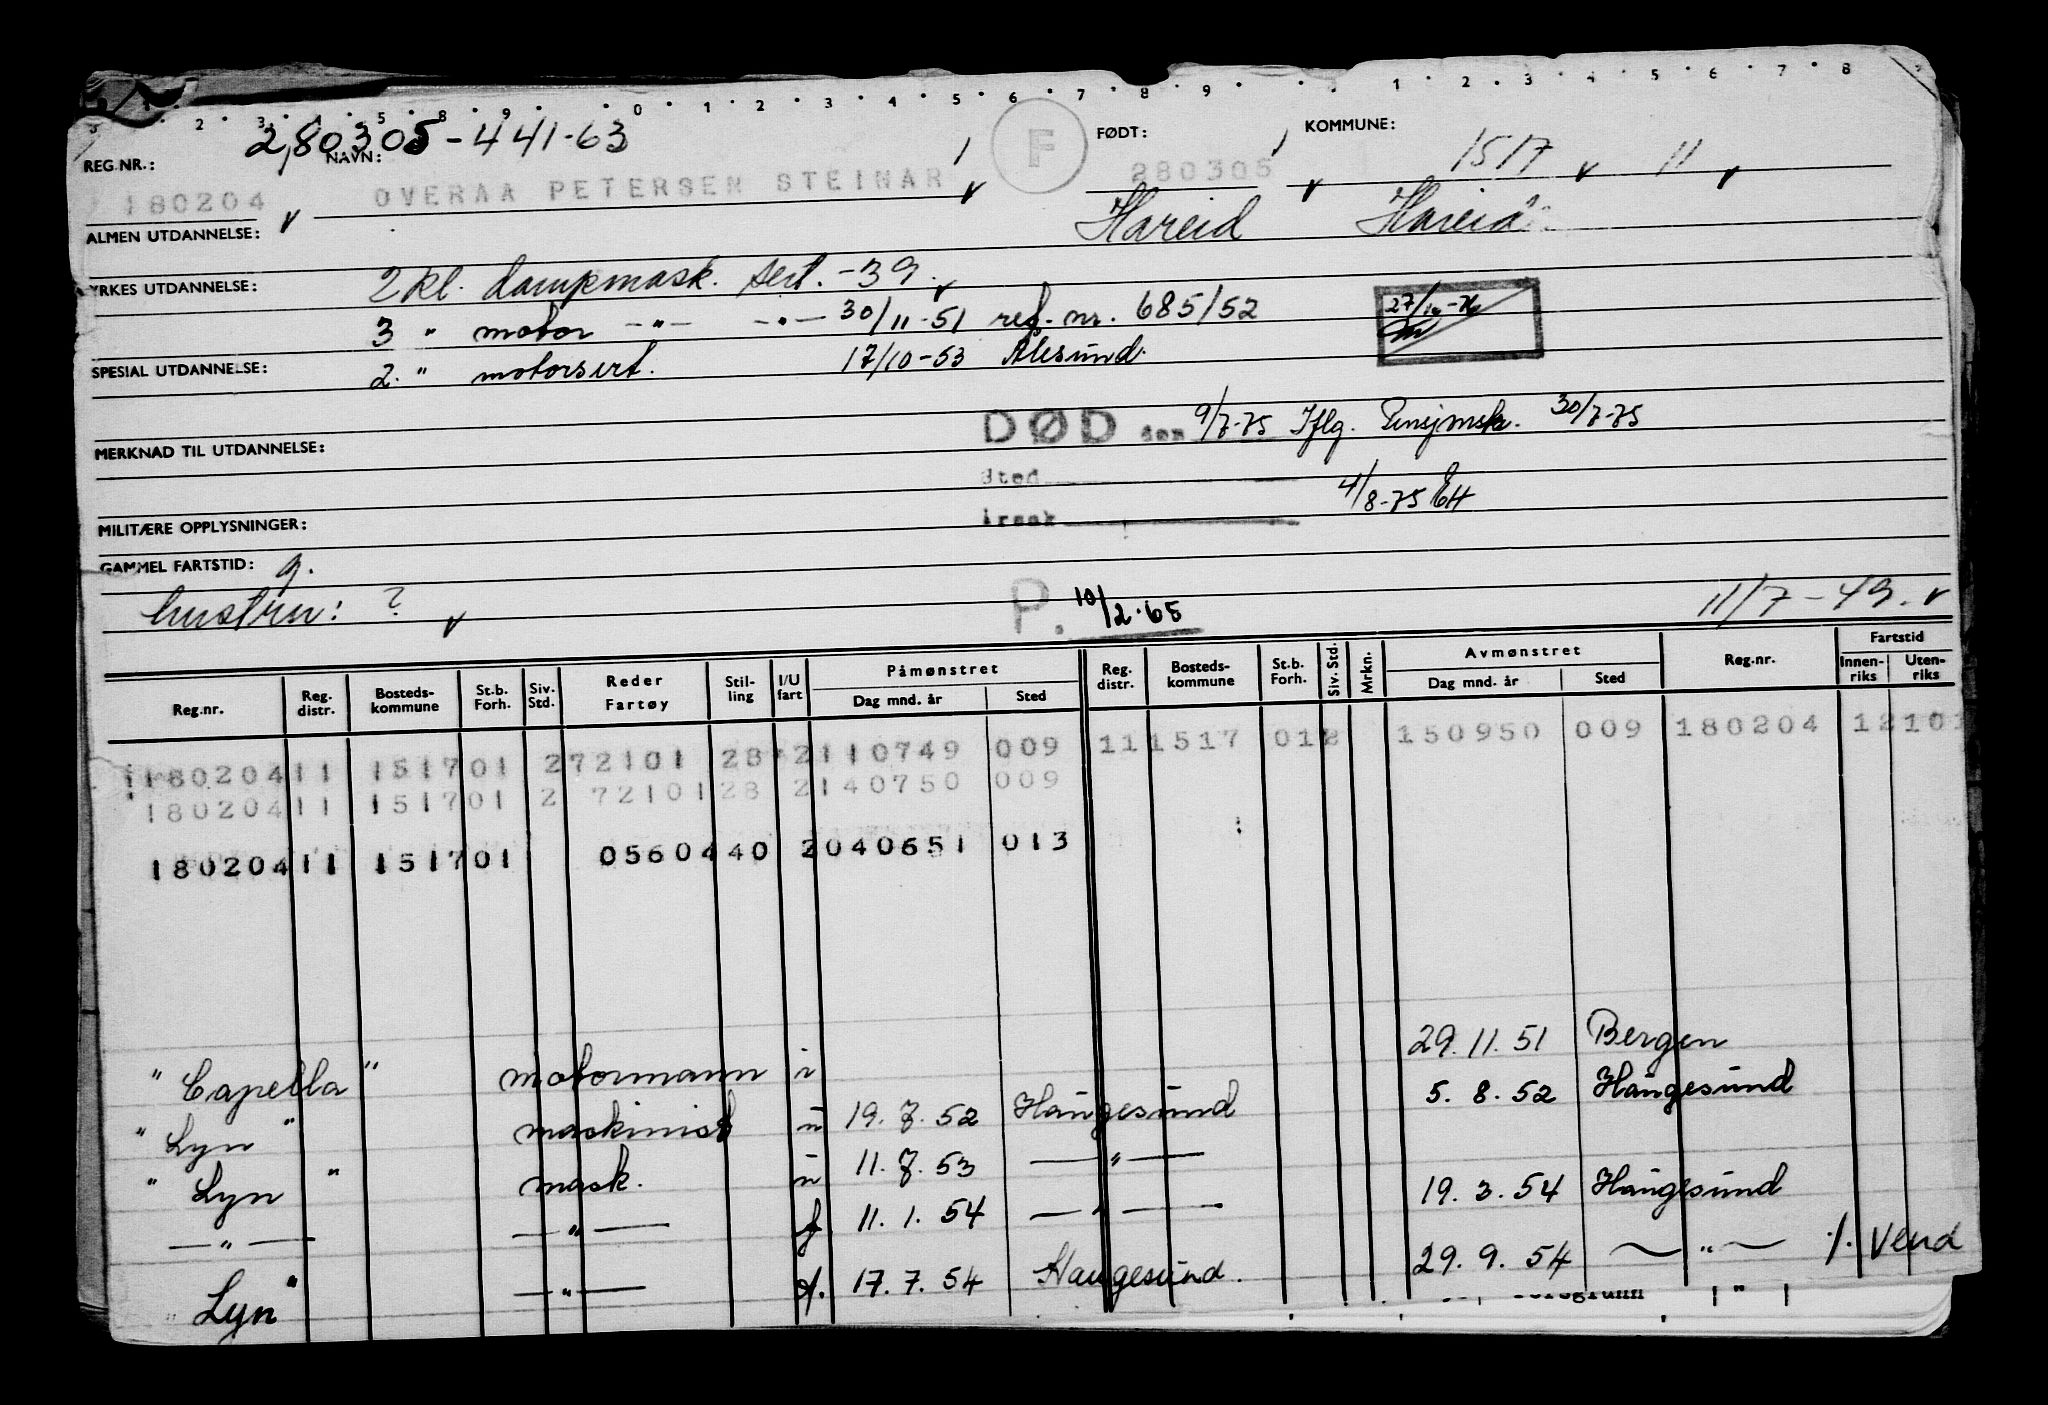 280305-441-63
REG.NR.: NAVN: FØDT: KOMMUNE:
180204 OVERAA PETERSEN STEINAR F 280305 1517 11
ALMEN UTDANNELSE: Hareid Hareid
YRKES UTDANNELSE: 2 kl. dampmask. sert. -39.
3 " motor -"- -"- 30/11-51 ref. nr. 685/52
SPESIAL UTDANNELSE: 2. " motorsert. 17/10-53 Ålesund.
DØD den 9/7-75 Iflg. Pensjmsk. 30/7-75
MERKNAD TIL UTDANNELSE:
Sted 4/8-75 EH
MILITÆRE OPPLYSNINGER: Årsak
GAMMEL FARTSTID: g.
hustru: ? P. 10/2-65 11/7-49.
Reg.nr. Reg. distr. Bosteds-kommune St.b. Forh. Siv. Std. Reder Fartøy Stil-ling I/U fart Påmønstret Dag mnd. år Sted Reg. distr. Bosteds-kommune St.b. Forh. Siv. Std. Mrkn. Avmønstret Dag mnd. år Sted Reg.nr. Fartstid Innen-riks Uten-riks
180204 11 1517 01 2 72101 28 2 110749 009 11 1517 01 2 150950 009 180204 12 101
180204 11 1517 01 2 72101 28 2 140750 009
180204 11 1517 01 05604 40 2 040651 013
" Capella " motormann i 29.11.51 Bergen
" Lyn " maskinist u 19.7.52 Haugesund 5.8.52 Haugesund
" Lyn " mask. u 11.7.53 —"—
—"— —"— f 11.1.54 —"— 19.3.54 Haugesund
" Lyn " —"— f. 17.7.54 Haugesund. 29.9.54 —"— ./. Vend